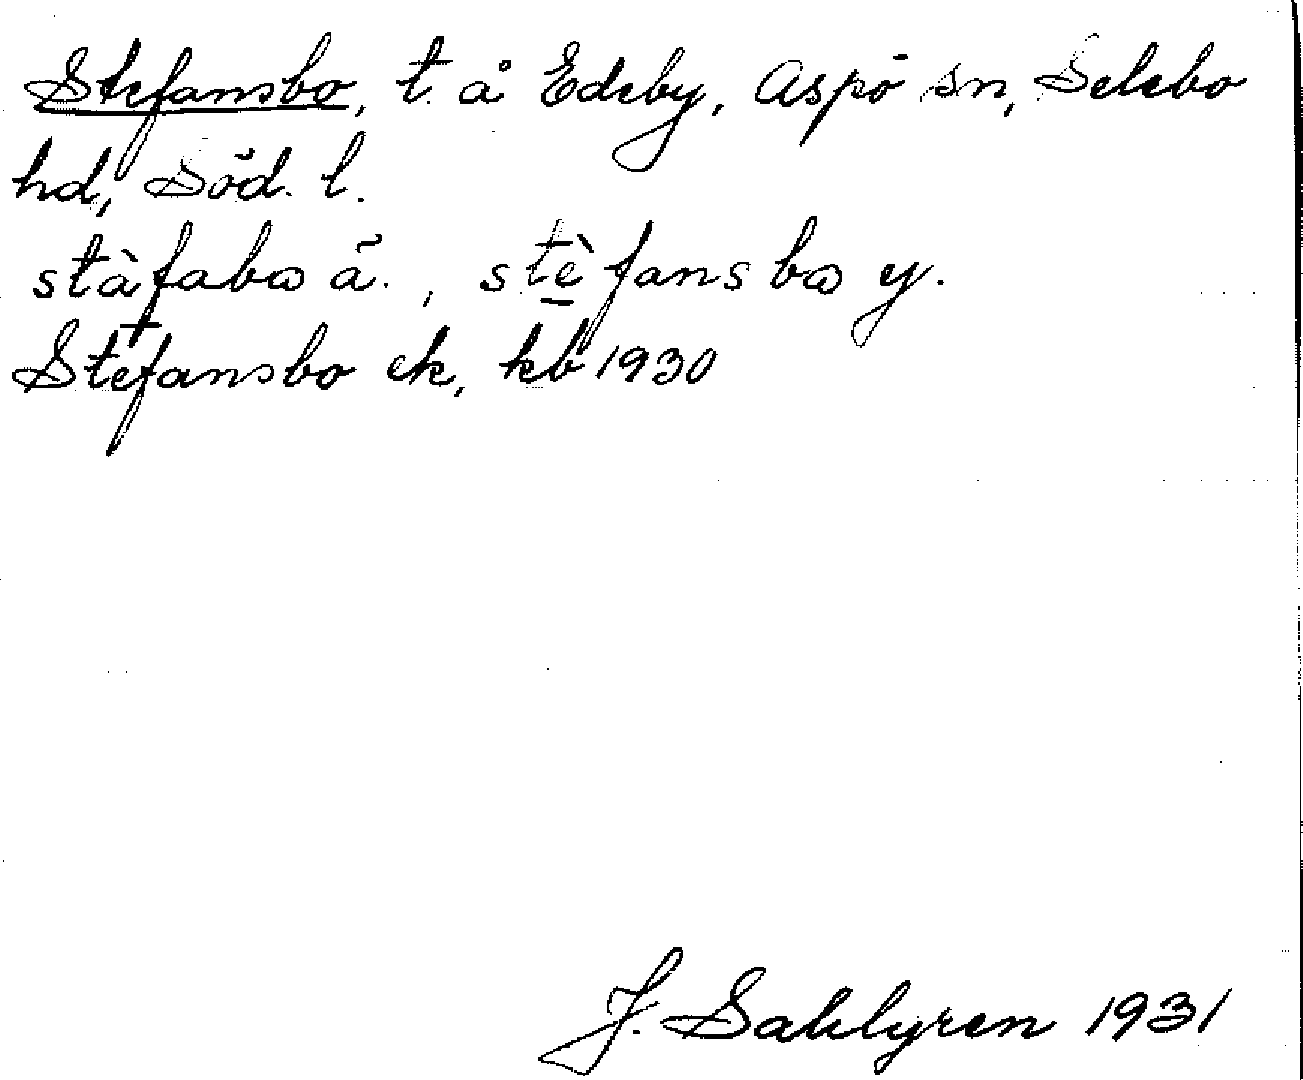 Stefansbo, t. å Edeby, Aspö sn, Selebo
hd, Söd. l.
stàfabω ä., stè̠fansbω y.
Stefansbo ek, kb 1930
J. Sahlgren 1931